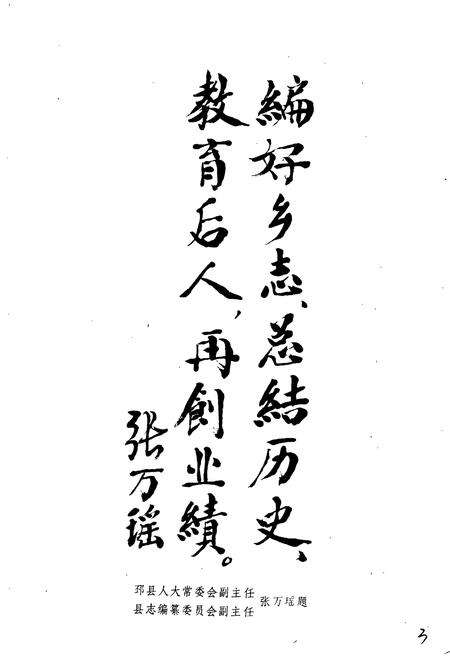 編好乡志、总結历史、
教育后人，再創业績。
张万瑶
邳县人大常委会副主任
县志编纂委员会副主任
张万瑶题
3